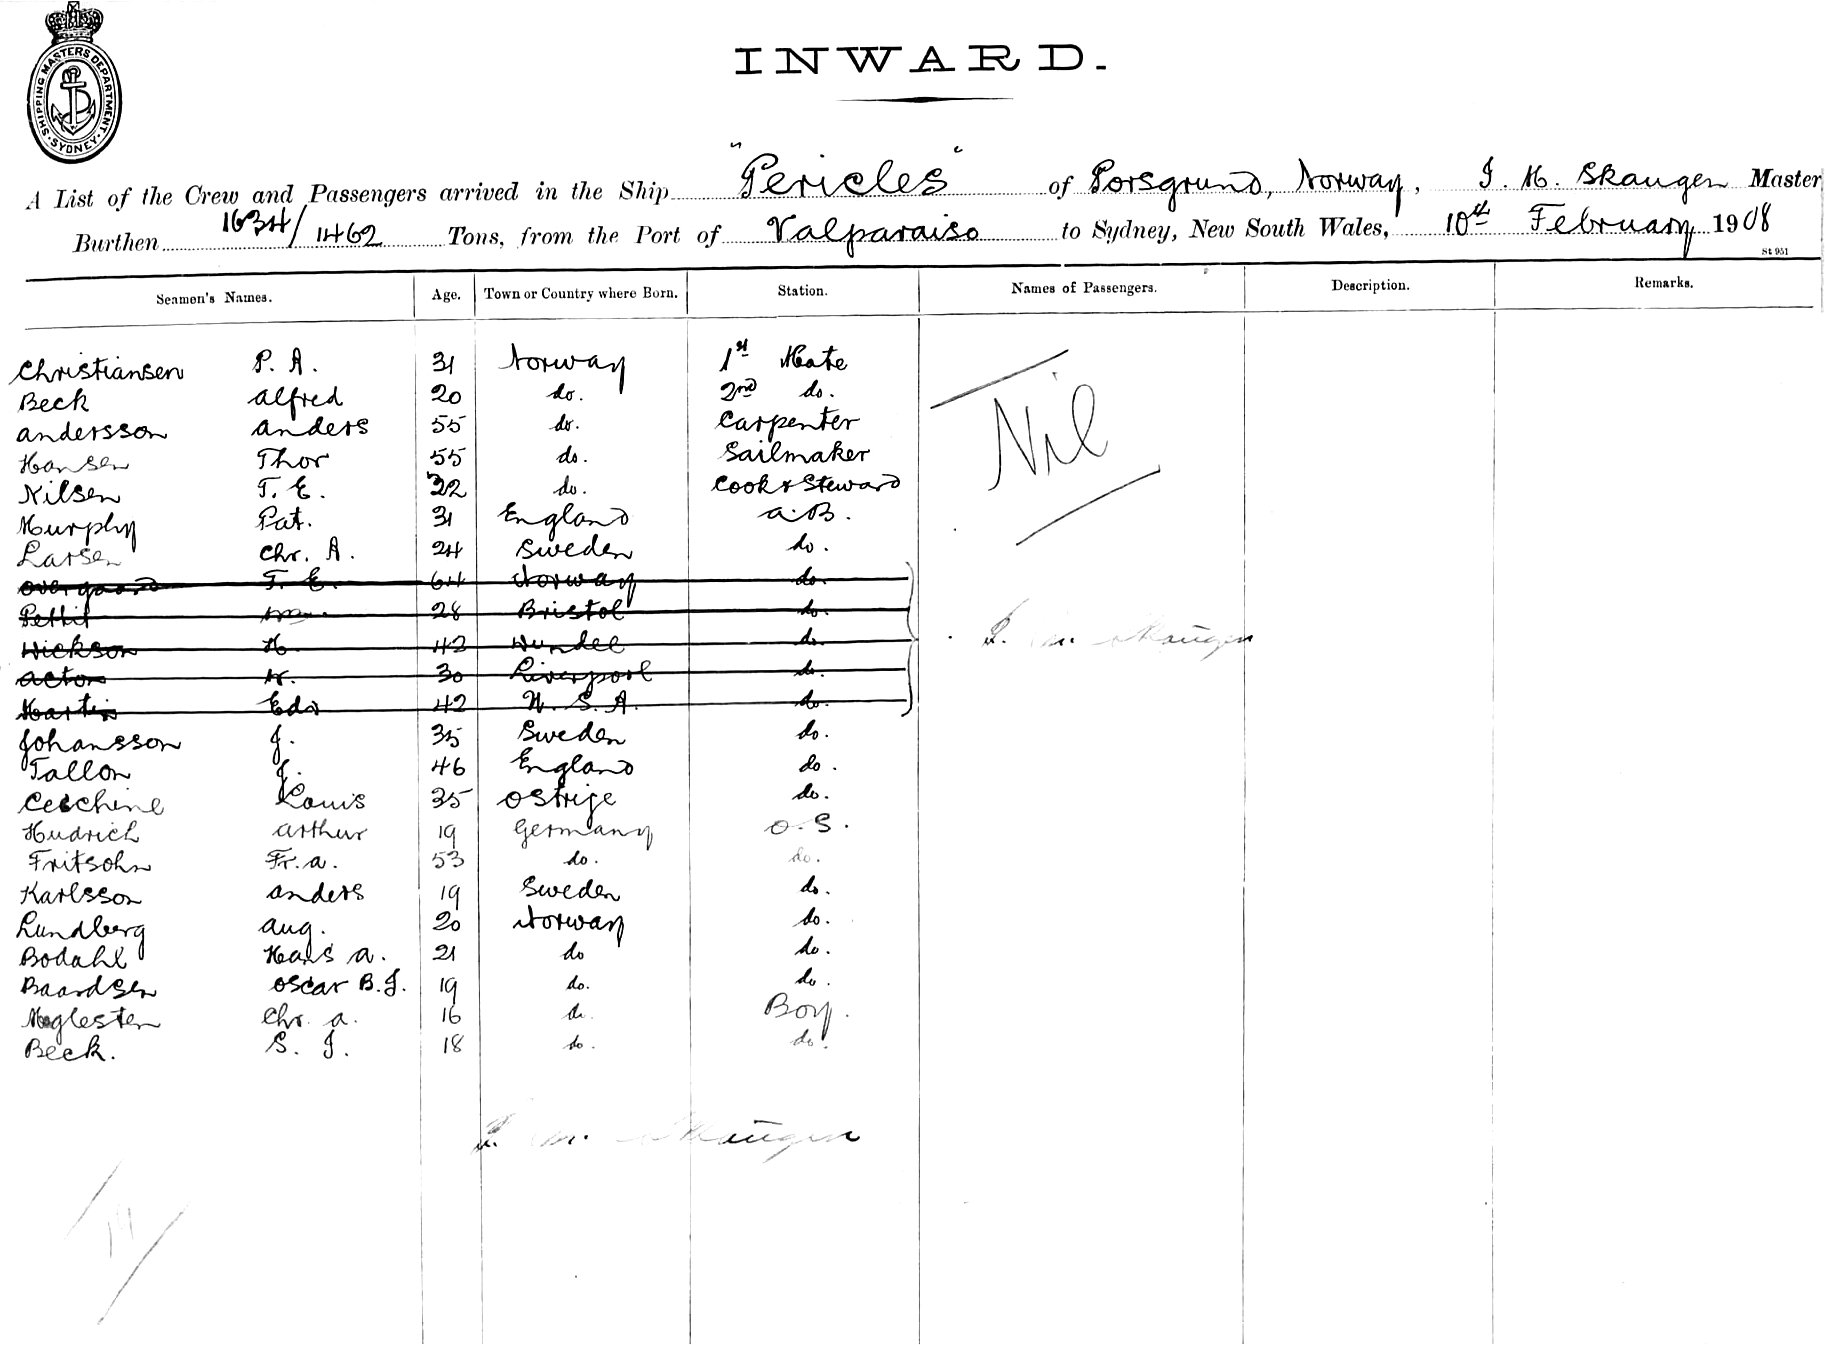 SHIPPING MASTERS DEPARTMENT · SYDNEY ·
INWARD.
A List of the Crew and Passengers arrived in the Ship "Pericles" of Porsgrund, Norway, I. M. Skaugen Master
Burthen 1634/1462 Tons, from the Port of Valparaiso to Sydney, New South Wales, 10th February 1908
St 951
Seamen's Names. Age. Town or Country where Born. Station. Names of Passengers. Description. Remarks.
Christiansen P. A. 31 Norway 1st Mate
Beck Alfred 20 do. 2nd do.
Andersson Anders 55 do. Carpenter
Hansen Thor 55 do. Sailmaker
Nil
Nilsen T. E. 22 do. Cook & Steward
Murphy Pat. 31 England A.B.
Larsen Chr. A. 24 Sweden do.
Overgaard T. E. 64 Norway do.
Pettit Wm. 28 Bristol do.
Dickson H. 42 Dundee do.
I. M. Skaugen
Acton W. 30 Liverpool do.
Martin Edw 42 U. S. A. do.
Johansson J. 35 Sweden do.
Tallon J. 46 England do.
Ceschine Louis 35 Ostrije do.
Hudrich Arthur 19 Germany O.S.
Fritsohn Fr. A. 53 do. do.
Karlsson Anders 19 Sweden do.
Lundberg Aug. 20 Norway do.
Bodahl Hans A. 21 do do.
Baardsen Oscar B.J. 19 do. do.
Moglesten Chr. A. 16 do. Boy.
Beck. S. J. 18 do. do.
I. M. Skaugen
19